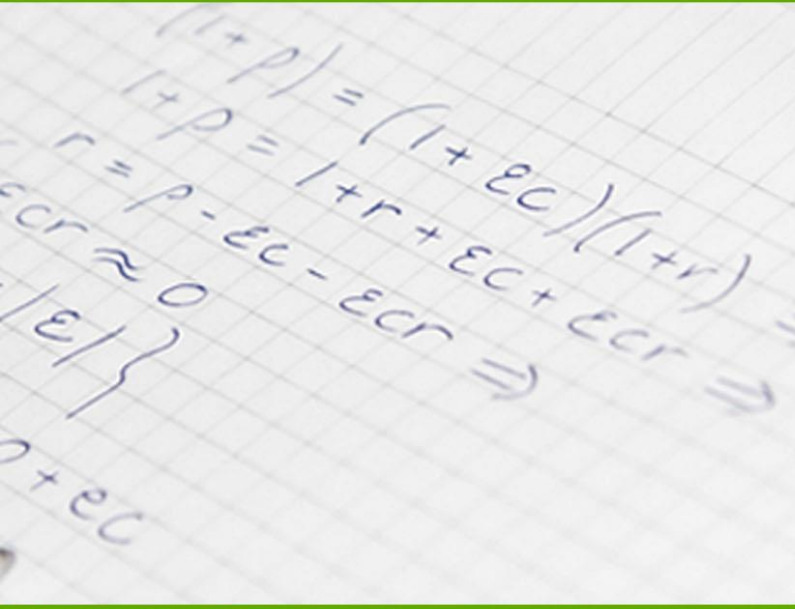 (1+p) = (1+εc)(1+r) =
1+p = 1+r+εc+εcr ⇒
r = p-εc-εcr ⇒
εcr ≈ 0
|ε|}
+ec